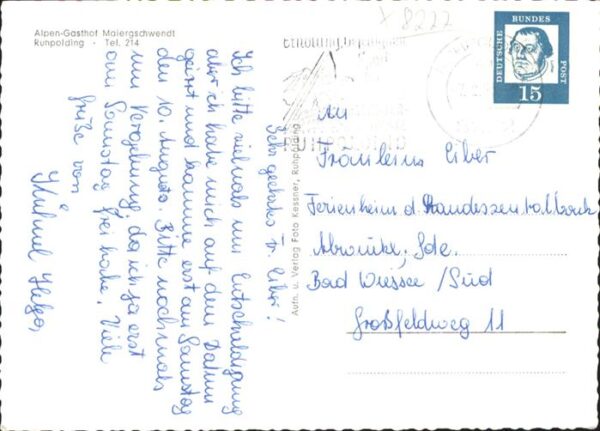 Alpen-Gasthof Maiergschwendt
Ruhpolding · Tel. 214
Sehr geehrtes Fr. Eiber!
Ich bitte vielmals um Entschuldigung
aber ich habe mich auf dem Datum
geirrt und komme erst am Samstag
den 10. Augusto. Bitte nochmals
um Verzeihung, da ich ja erst
am Samstag frei habe. Viele
Grüße von
Helga
Aufn. u. Verlag Foto Kessner, Ruhpolding
X 8222
DEUTSCHE
BUNDES
POST
15
An
Fräulein Eiber
Ferienheim d.
Bad Wiessee/Süd
Großfeldweg 11